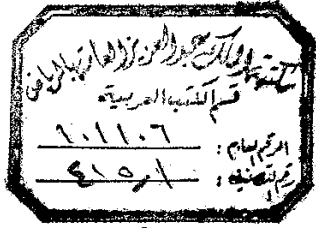 مكتبة الملك عبد العزيز العامة بالرياض
قسم الكتب العربية
الرقم العام : ١٠١١٠٦
رقم التصنيف : ٤١٥٫١